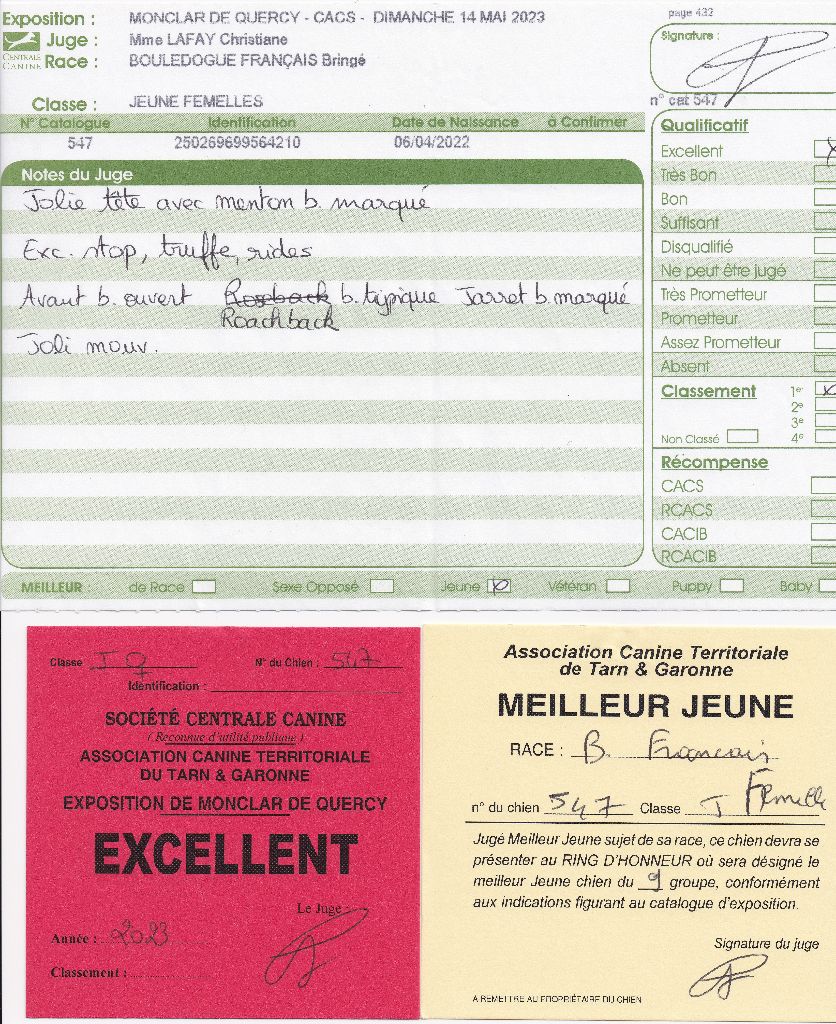 Exposition : MONCLAR DE QUERCY - CACS - DIMANCHE 14 MAI 2023
page 432
Juge : Mme LAFAY Christiane
CENTRALE CANINE
Race : BOULEDOGUE FRANÇAIS Bringé
Signature :
Classe : JEUNE FEMELLES
n° cat 547
N° Catalogue Identification Date de Naissance à Confirmer
547 250269699564210 06/04/2022
Notes du Juge
Jolie tête avec menton b. marqué
Exc. stop, truffe, rides
Avant b. ouvert Rosback b. typique Jarret b. marqué
Roachback
Joli mouv.
Qualificatif
Excellent X
Très Bon
Bon
Suffisant
Disqualifié
Ne peut être jugé
Très Prometteur
Prometteur
Assez Prometteur
Absent
Classement 1er X
2e
3e
Non Classé 4e
Récompense
CACS
RCACS
CACIB
RCACIB
MEILLEUR : de Race Sexe Opposé Jeune X Vétéran Puppy Baby
Classe J ♀ N° du Chien : 547
Identification :
SOCIÉTÉ CENTRALE CANINE
(Reconnue d'utilité publique)
ASSOCIATION CANINE TERRITORIALE
DU TARN & GARONNE
EXPOSITION DE MONCLAR DE QUERCY
EXCELLENT
Le Juge
Année : 2023
Classement :
Association Canine Territoriale
de Tarn & Garonne
MEILLEUR JEUNE
RACE : B. Francais
n° du chien 547 Classe J Femelle
Jugé Meilleur Jeune sujet de sa race, ce chien devra se
présenter au RING D'HONNEUR où sera désigné le
meilleur Jeune chien du 9 groupe, conformément
aux indications figurant au catalogue d'exposition.
Signature du juge
A REMETTRE AU PROPRIÉTAIRE DU CHIEN